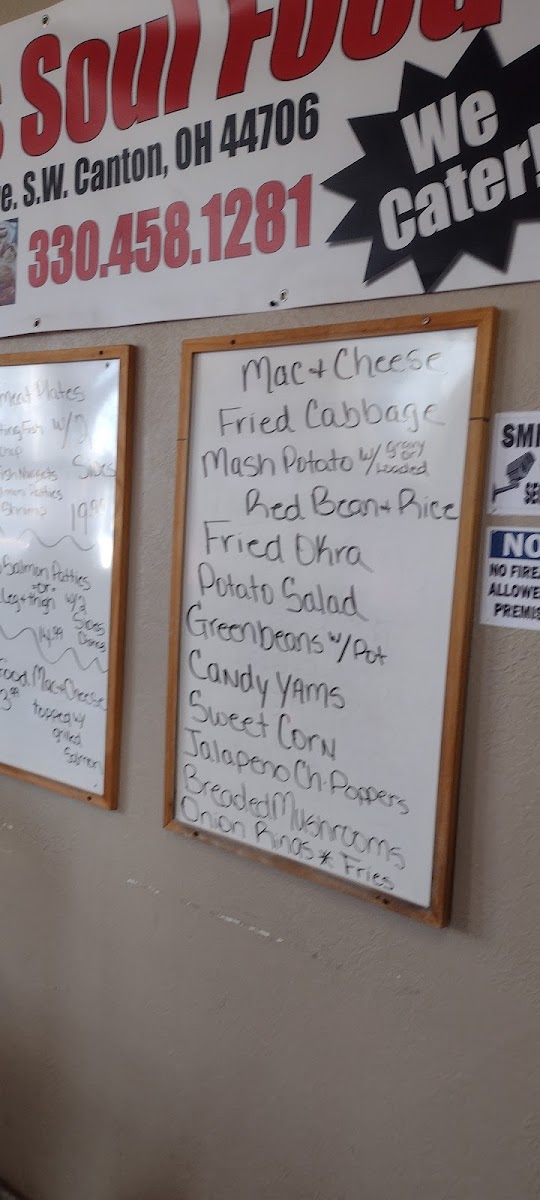 Soul Food
S.W. Canton, OH 44706
330.458.1281
We
Cater!
meat Plates
w/2
Sides
Shrimp
19.99
Salmon Patties
"or"
Leg + thigh w/2
Sides
14.99
food Mac + Cheese
topped w/
grilled
Salmon
Mac + Cheese
Fried Cabbage
Mash Potato w/ gravy or Loaded
Red Bean + Rice
Fried Okra
Potato Salad
Greenbeans w/ Pot
Candy Yams
Sweet Corn
Jalapeno Ch. Poppers
Breaded Mushrooms
Onion Rings * Fries
SMI
SE
NO
NO FIREA
ALLOWE
PREMIS